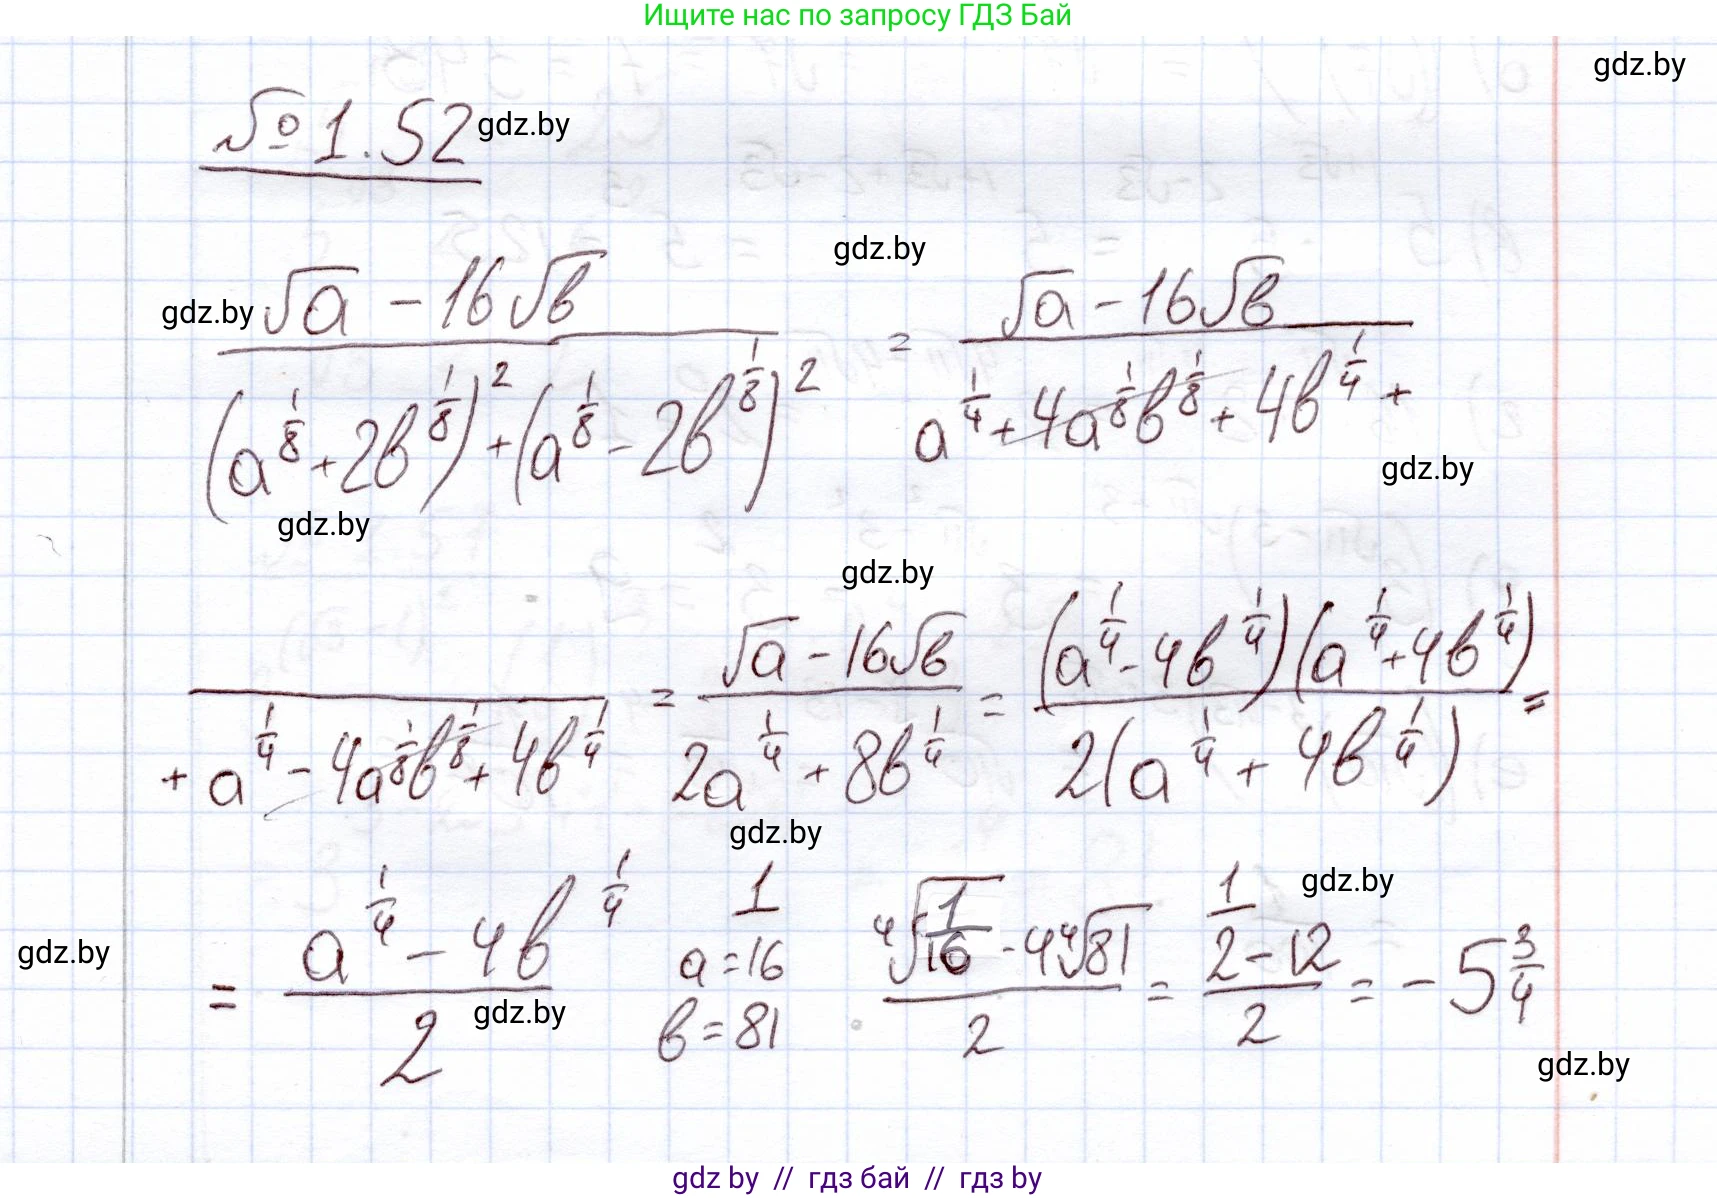 Ищите нас по запросу ГДЗ Бай
gdz.by
№ 1.52 gdz.by
gdz.by
gdz.by (√a − 16√b)/((a^(1/8) + 2b^(1/8))² + (a^(1/8) − 2b^(1/8))²) = (√a − 16√b)/(a^(1/4) + 4a^(1/8)b^(1/8) + 4b^(1/4) +
gdz.by
gdz.by
gdz.by
+ a^(1/4) − 4a^(1/8)b^(1/8) + 4b^(1/4)) = (√a − 16√b)/(2a^(1/4) + 8b^(1/4)) = ((a^(1/4) − 4b^(1/4))(a^(1/4) + 4b^(1/4)))/(2(a^(1/4) + 4b^(1/4))) =
gdz.by
gdz.by
gdz.by
= (a^(1/4) − 4b^(1/4))/2 a = 1/16 b = 81 (⁴√(1/16) − 4⁴√81)/2 = (1/2 − 12)/2 = − 5 3/4
gdz.by
gdz.by
gdz by // гдз бай // гдз by